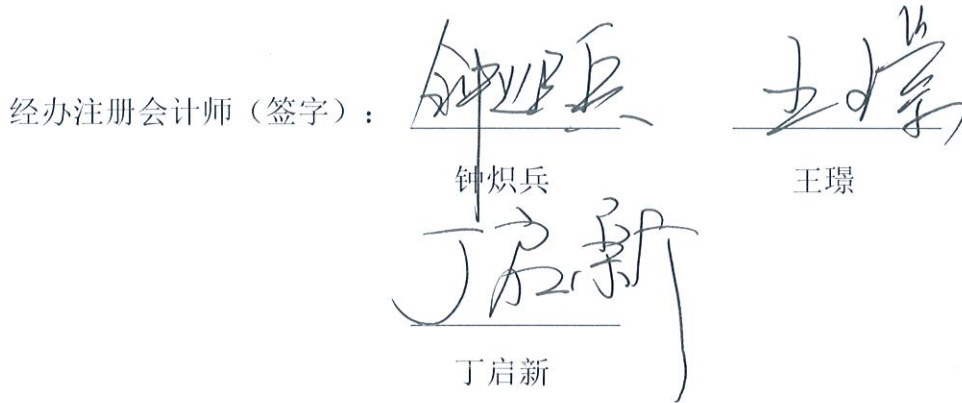 经办注册会计师（签字）： 钟炽兵 王璟
钟炽兵 王璟
丁启新
丁启新